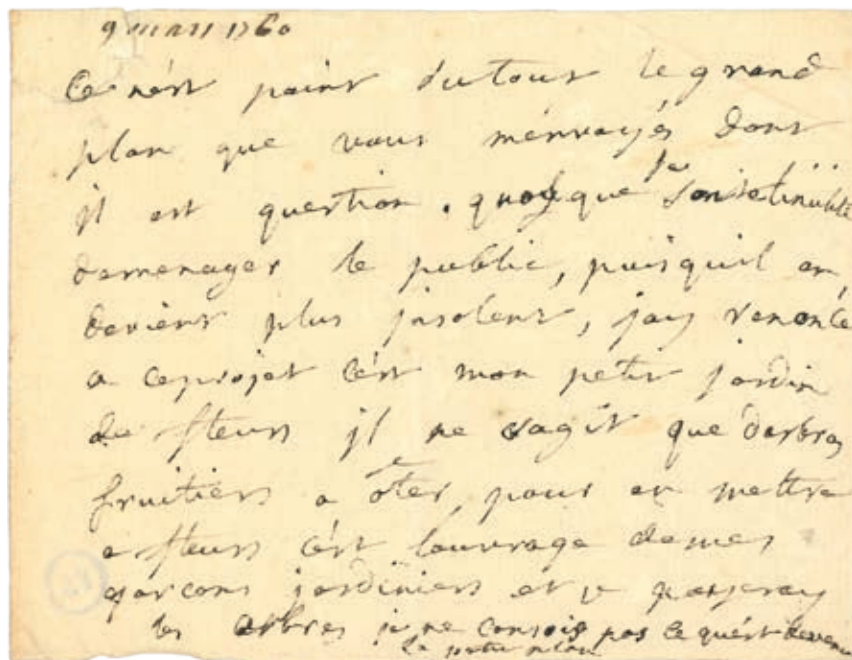 9 mars 1760
Ce nest point dutout le grand
plan que vous menvoyés dont
jl est question. quoyque je
demenager le public, puisquil en
devient plus jnsolent, jay renoncé
a ceprojet cest mon petit jardin
de fleurs jl ne sagit que darbres
fruitiers a oter pour en mettre
a fleurs cest louvrage demes
garcons jardiniers et je payeray
les arbres je ne consois pas ce quest devenu
le petit plan